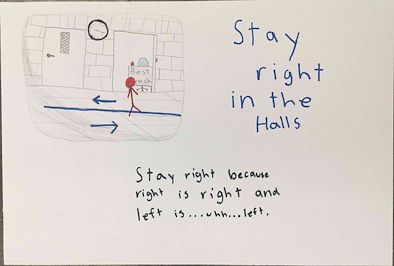 Best
Stay
right
in the
Halls
Stay right because
right is right and
left is...uhh...left.